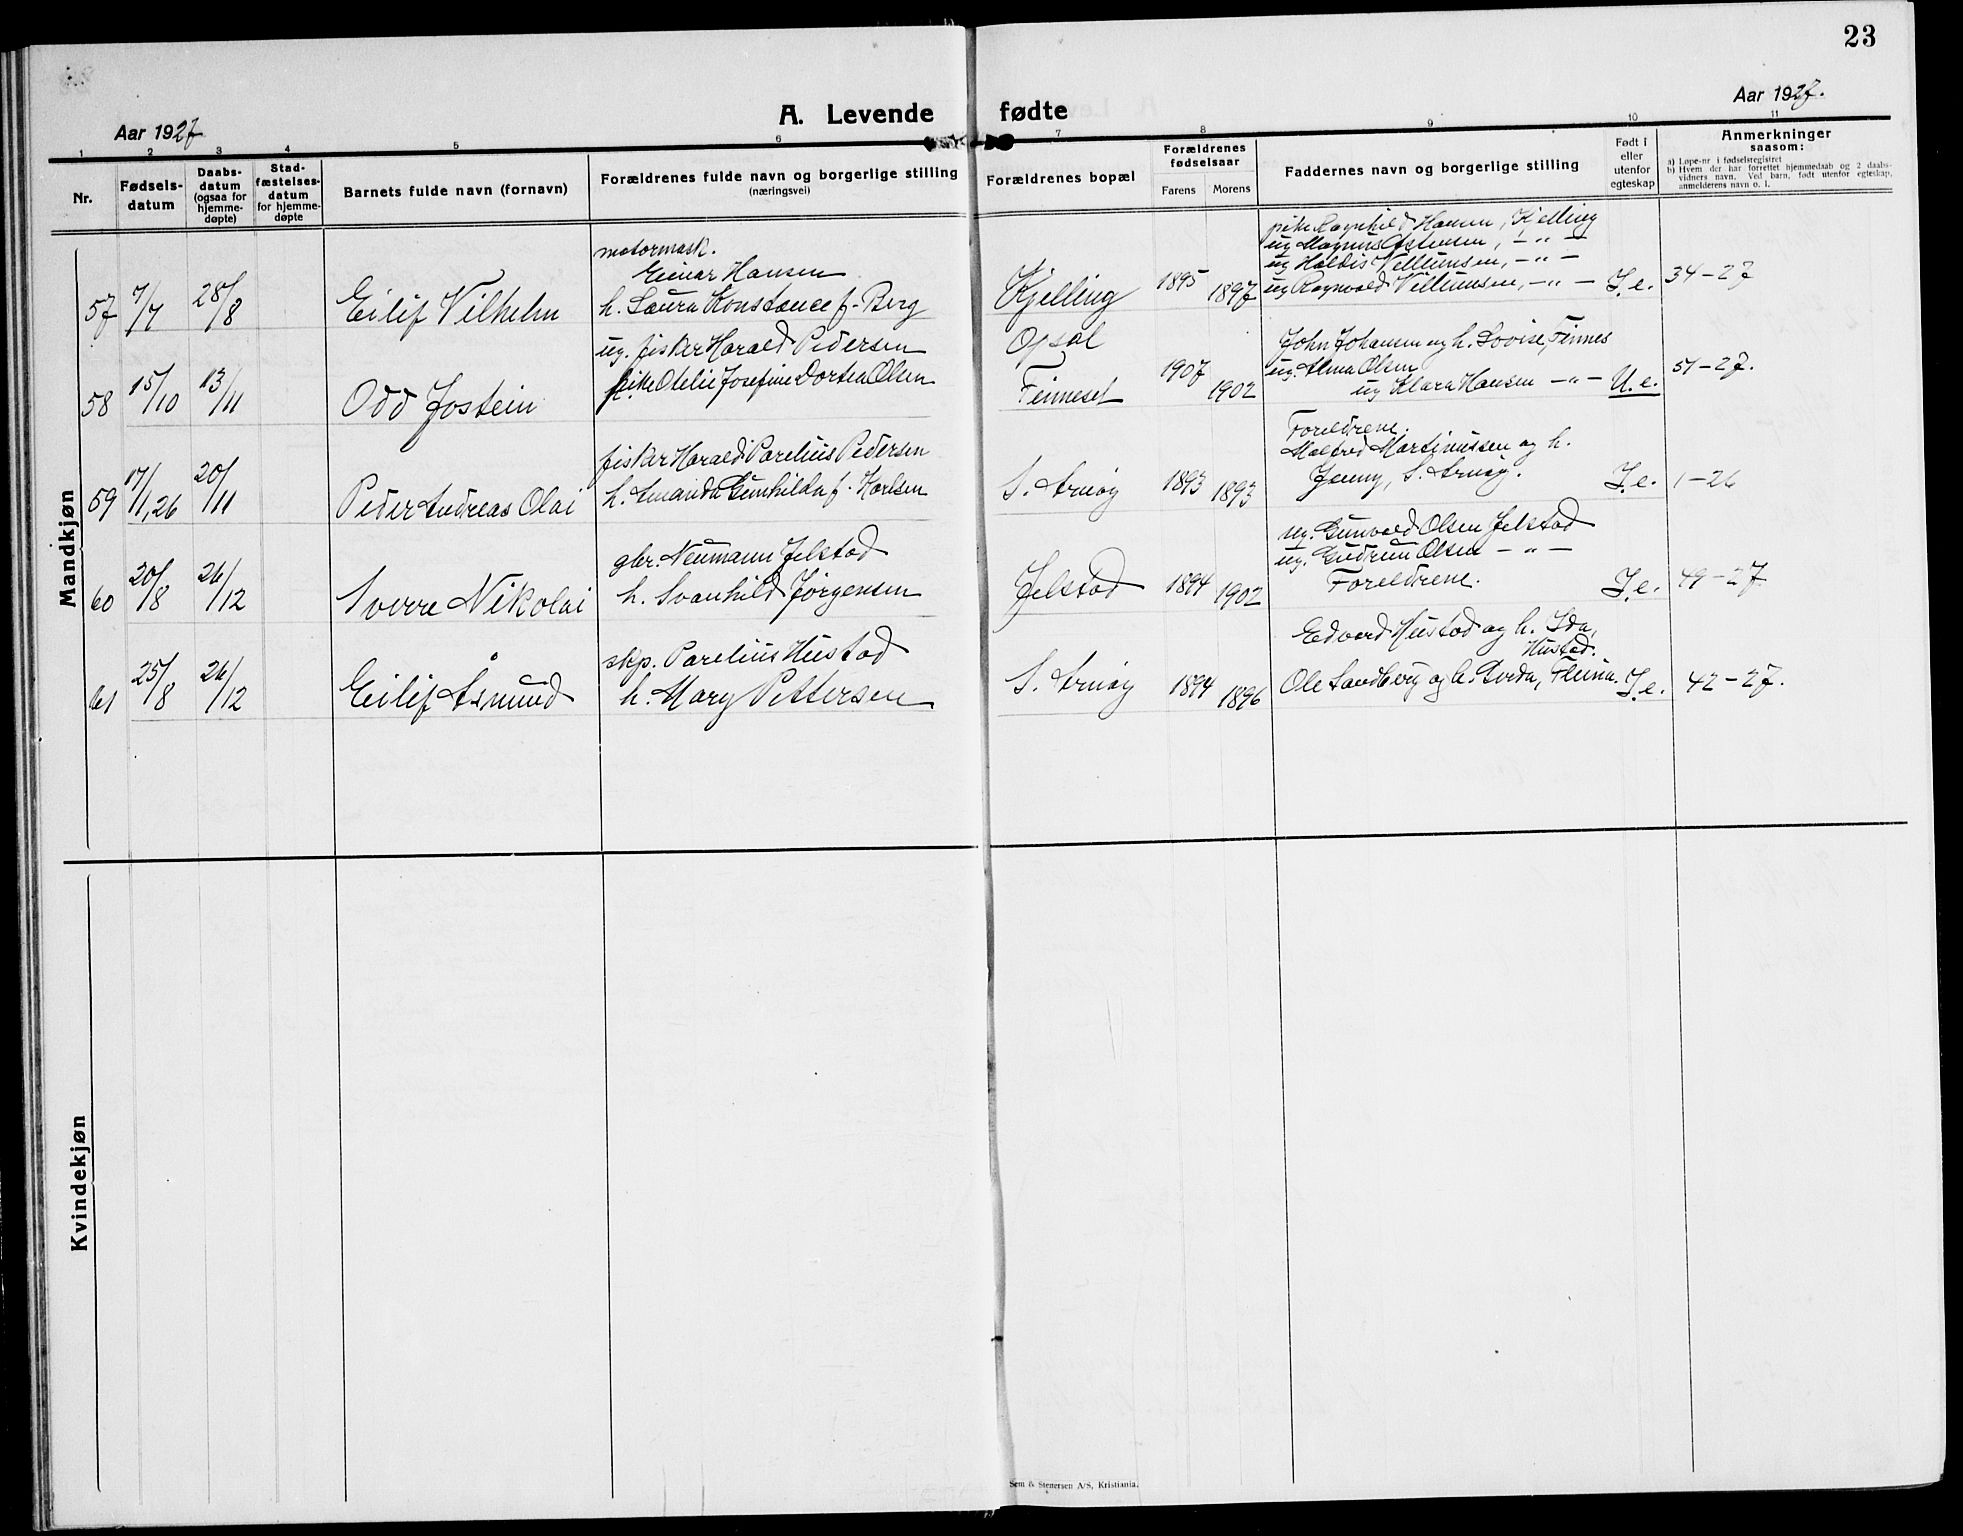 23
Aar 1927
A. Levende fødte
Aar 1927.
1 2 3 4 5 6 7 8 9 10 11
Nr.
Fødsels-
datum
Daabs-
datum
(ogsaa for
hjemme-
døpte)
Stad-
fæstelses-
datum
for hjemme-
døpte
Barnets fulde navn (fornavn)
Forældrenes fulde navn og borgerlige stilling
(næringsvei)
Forældrenes bopæl
Forældrenes
fødselsaar
Farens Morens
Faddernes navn og borgerlige stilling
Født i
eller
utenfor
egteskap
Anmerkninger
saasom:
a) Løpe-nr i fødselsregistret
b) Hvem der har forrettet hjemmedaab og 2 daabs-
vidners navn. Ved barn, født utenfor egteskap,
anmelderens navn o. l.
Mandkjøn
57 7/7 28/8 Eilif Vilhelm
motormask.
Einar Hansen
h. Laura Konstance f. Berg
Kjelling 1895 1897
pike Ragnhild Hansen, Kjelling
ug Magnus Astensen, - " -
ug Haldis Villumsen, - " -
ug Ragnvald Villumsen, - " -
I.e. 34-27
58 15/10 13/11 Odd Jostein
ug. fisker Harald Pedersen
pike Otelie Josefine Dortea Olsen
Opsal
Finneset 1907 1902
John Johansen og h. Lovise, Finnes
ug. Alma Olsen
ug Klara Hansen - " -
U.e. 51-27.
59 17/1,26 20/11 Peder Andreas Olai
fisker Harald Parelius Pedersen
h. Amanda Gunhilda f. Karlsen
S. Arnøy 1893 1893
Foreldrene.
Malfred Martinussen og h.
Jenny, S. Arnøy.
I.e. 1-26
60 20/8 26/12 Sverre Nikolai
gbr. Neumann Jelstad
h. Svanhild Jørgensen
Jelstad 1894 1902
ug. Gunvald Olsen Jelstad
ug. Gudrun Olsen - " -
Foreldrene.
I.e. 49-27
61 25/8 26/12 Eilif Åsmund
skp. Parelius Hustad
h. Mary Pettersen
S. Arnøy 1894 1896
Edvard Hustad og h. Ida,
Hustad.
Ole Sandberg og h. Fleina.
I.e. 42-27.
Kvindekjøn
Sem & Stenersen A/S, Kristiania.